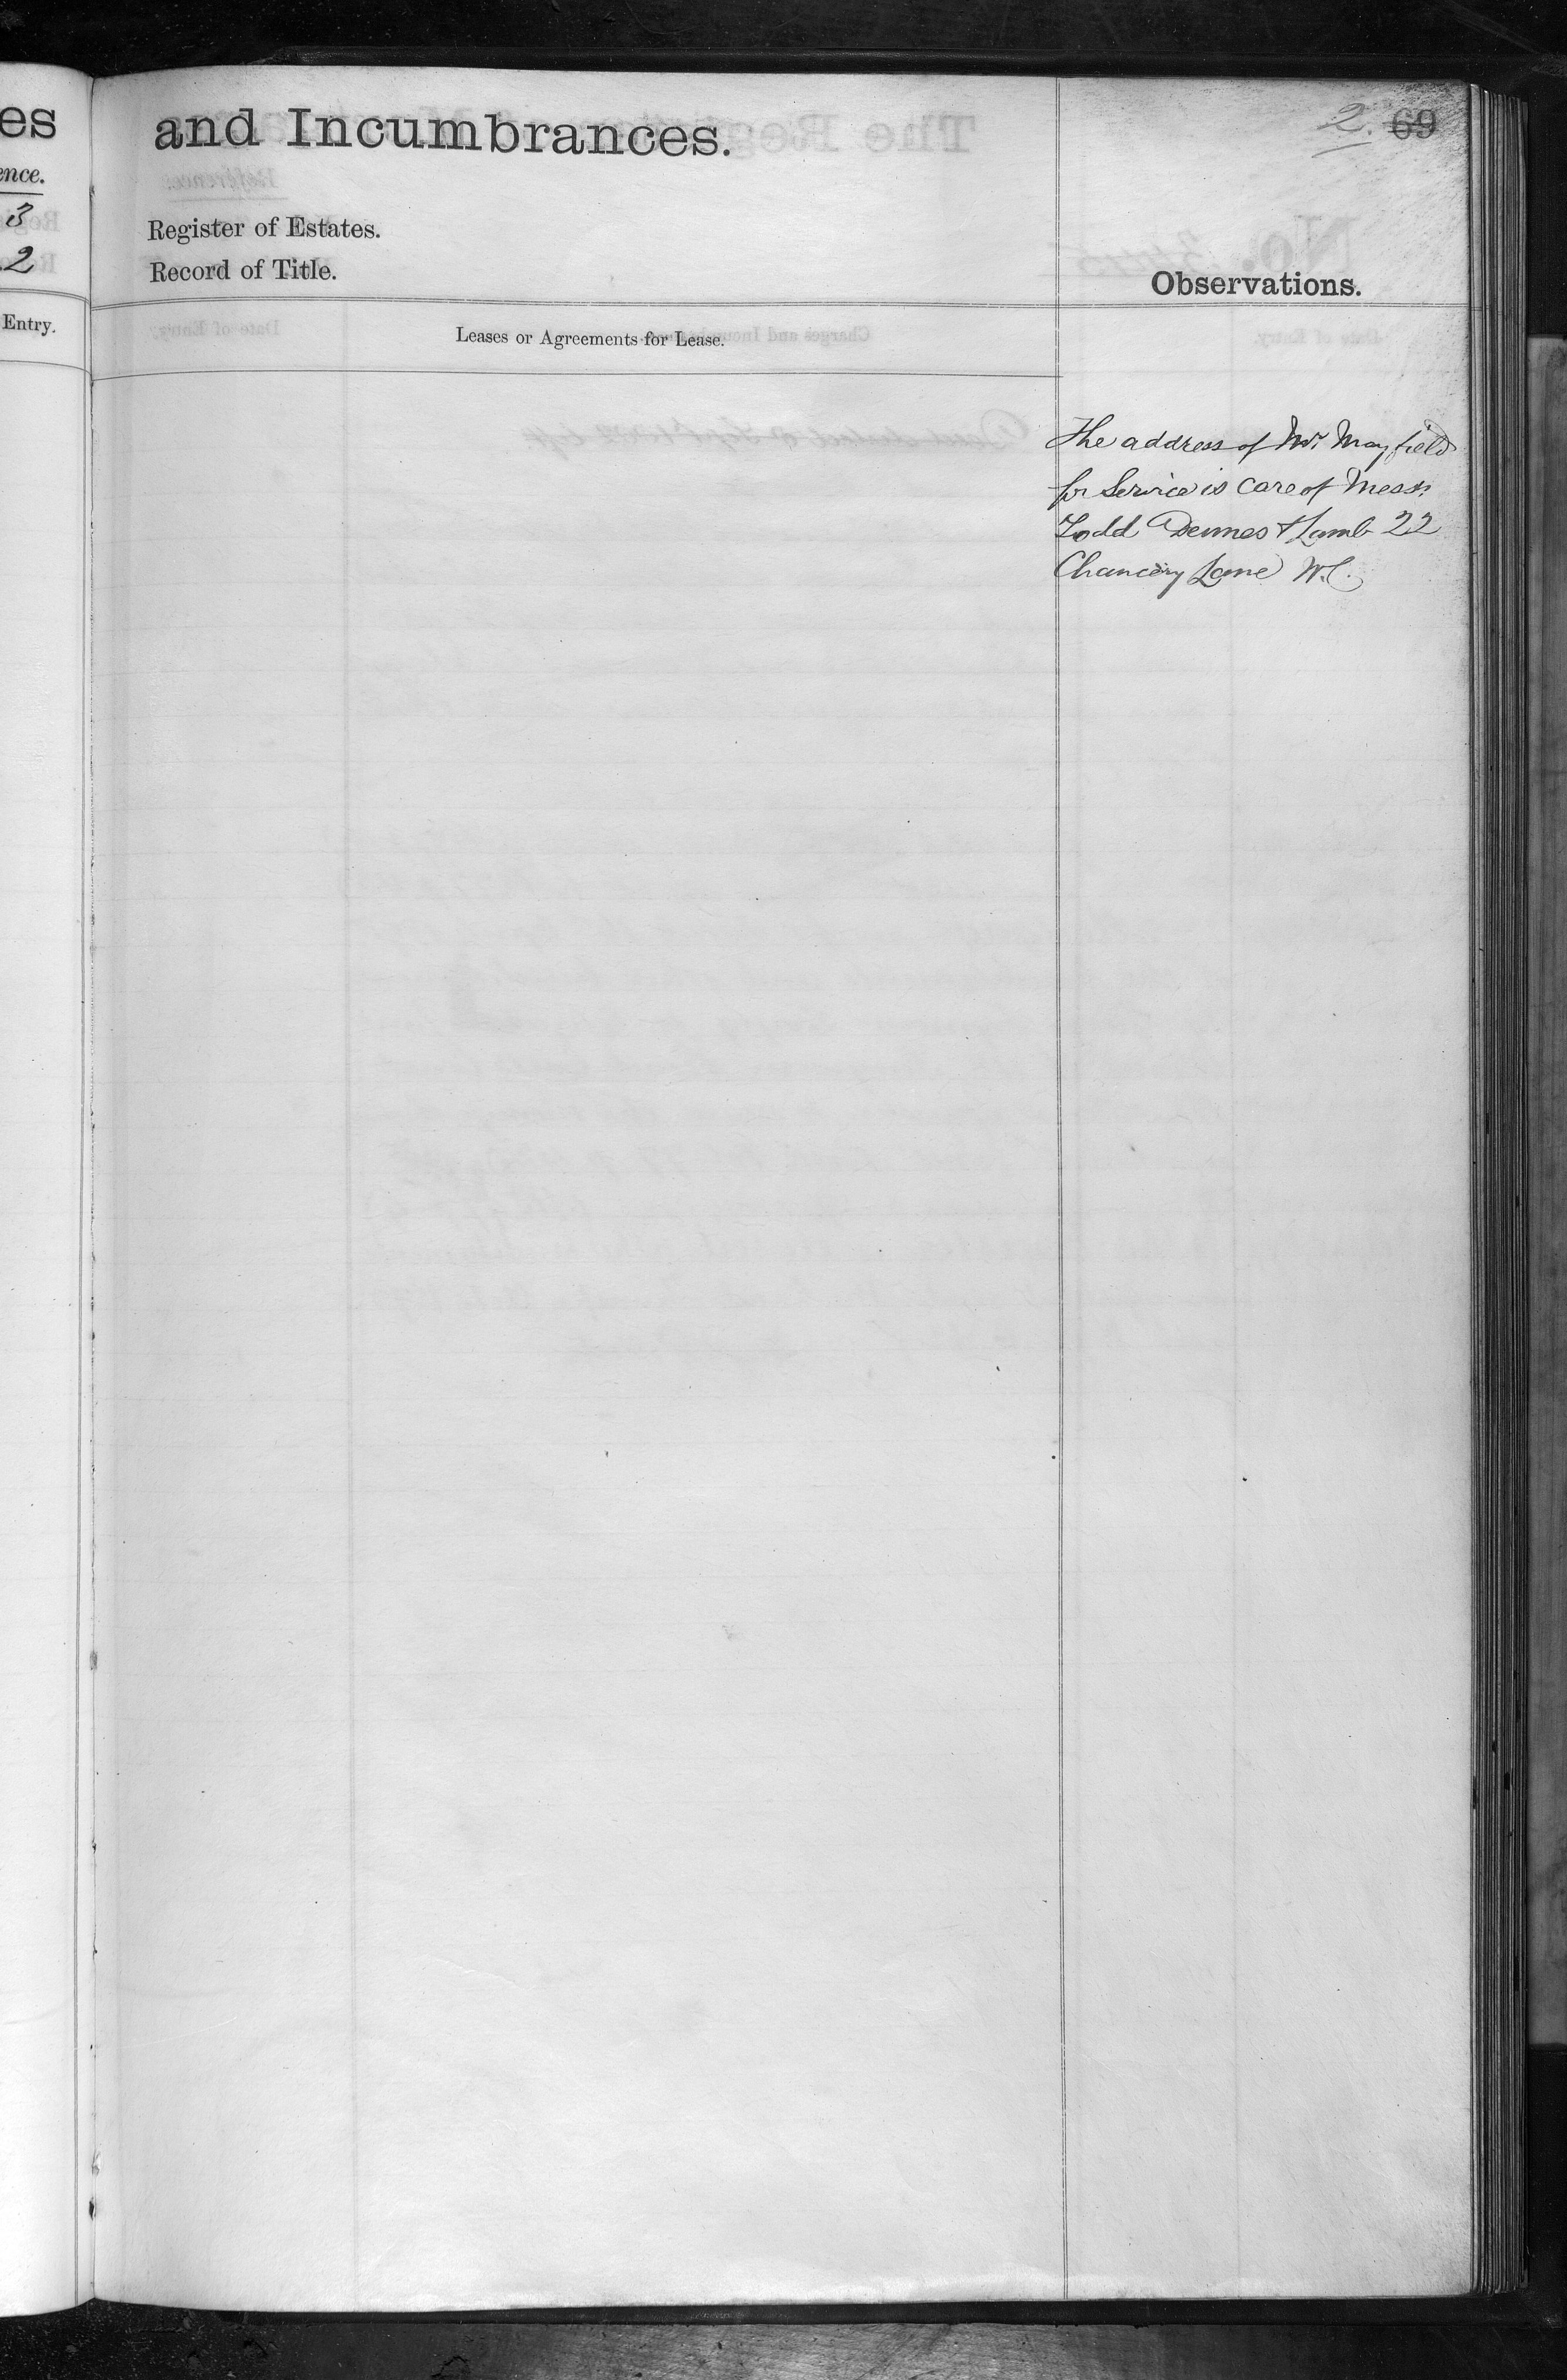 es
ence.
3
2
Entry.
and Incumbrances.
2. 69
Register of Estates.
Record of Title.
Observations.
Leases or Agreements for Lease.
The address of Mr. Mayfield
for Service is care of Messrs.
Todd Dennes & Lamb 22
Chancery Lane W.C.